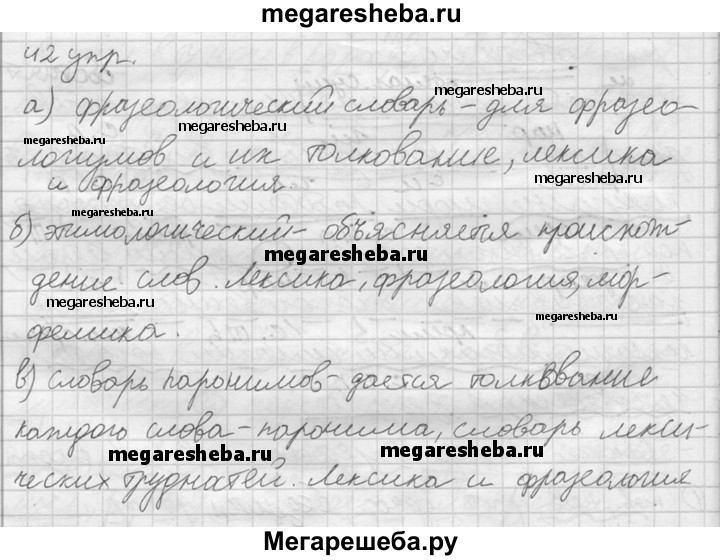 megaresheba.ru
42 упр.
megaresheba.ru
megaresheba.ru
а) фразеологический словарь - для фразео-
megaresheba.ru
логизмов и их толкование, лексика
megaresheba.ru
и фразеология.
megaresheba.ru
б) этимологический - объясняется происхож-
megaresheba.ru
дение слов. Лексика, фразеология, мор-
megaresheba.ru
megaresheba.ru
фемика.
в) словарь паронимов - дается толкование
каждого слова - паронима, словарь лекси-
megaresheba.ru
megaresheba.ru
ческих трудностей. Лексика и фразеология
Мегарешеба.ру